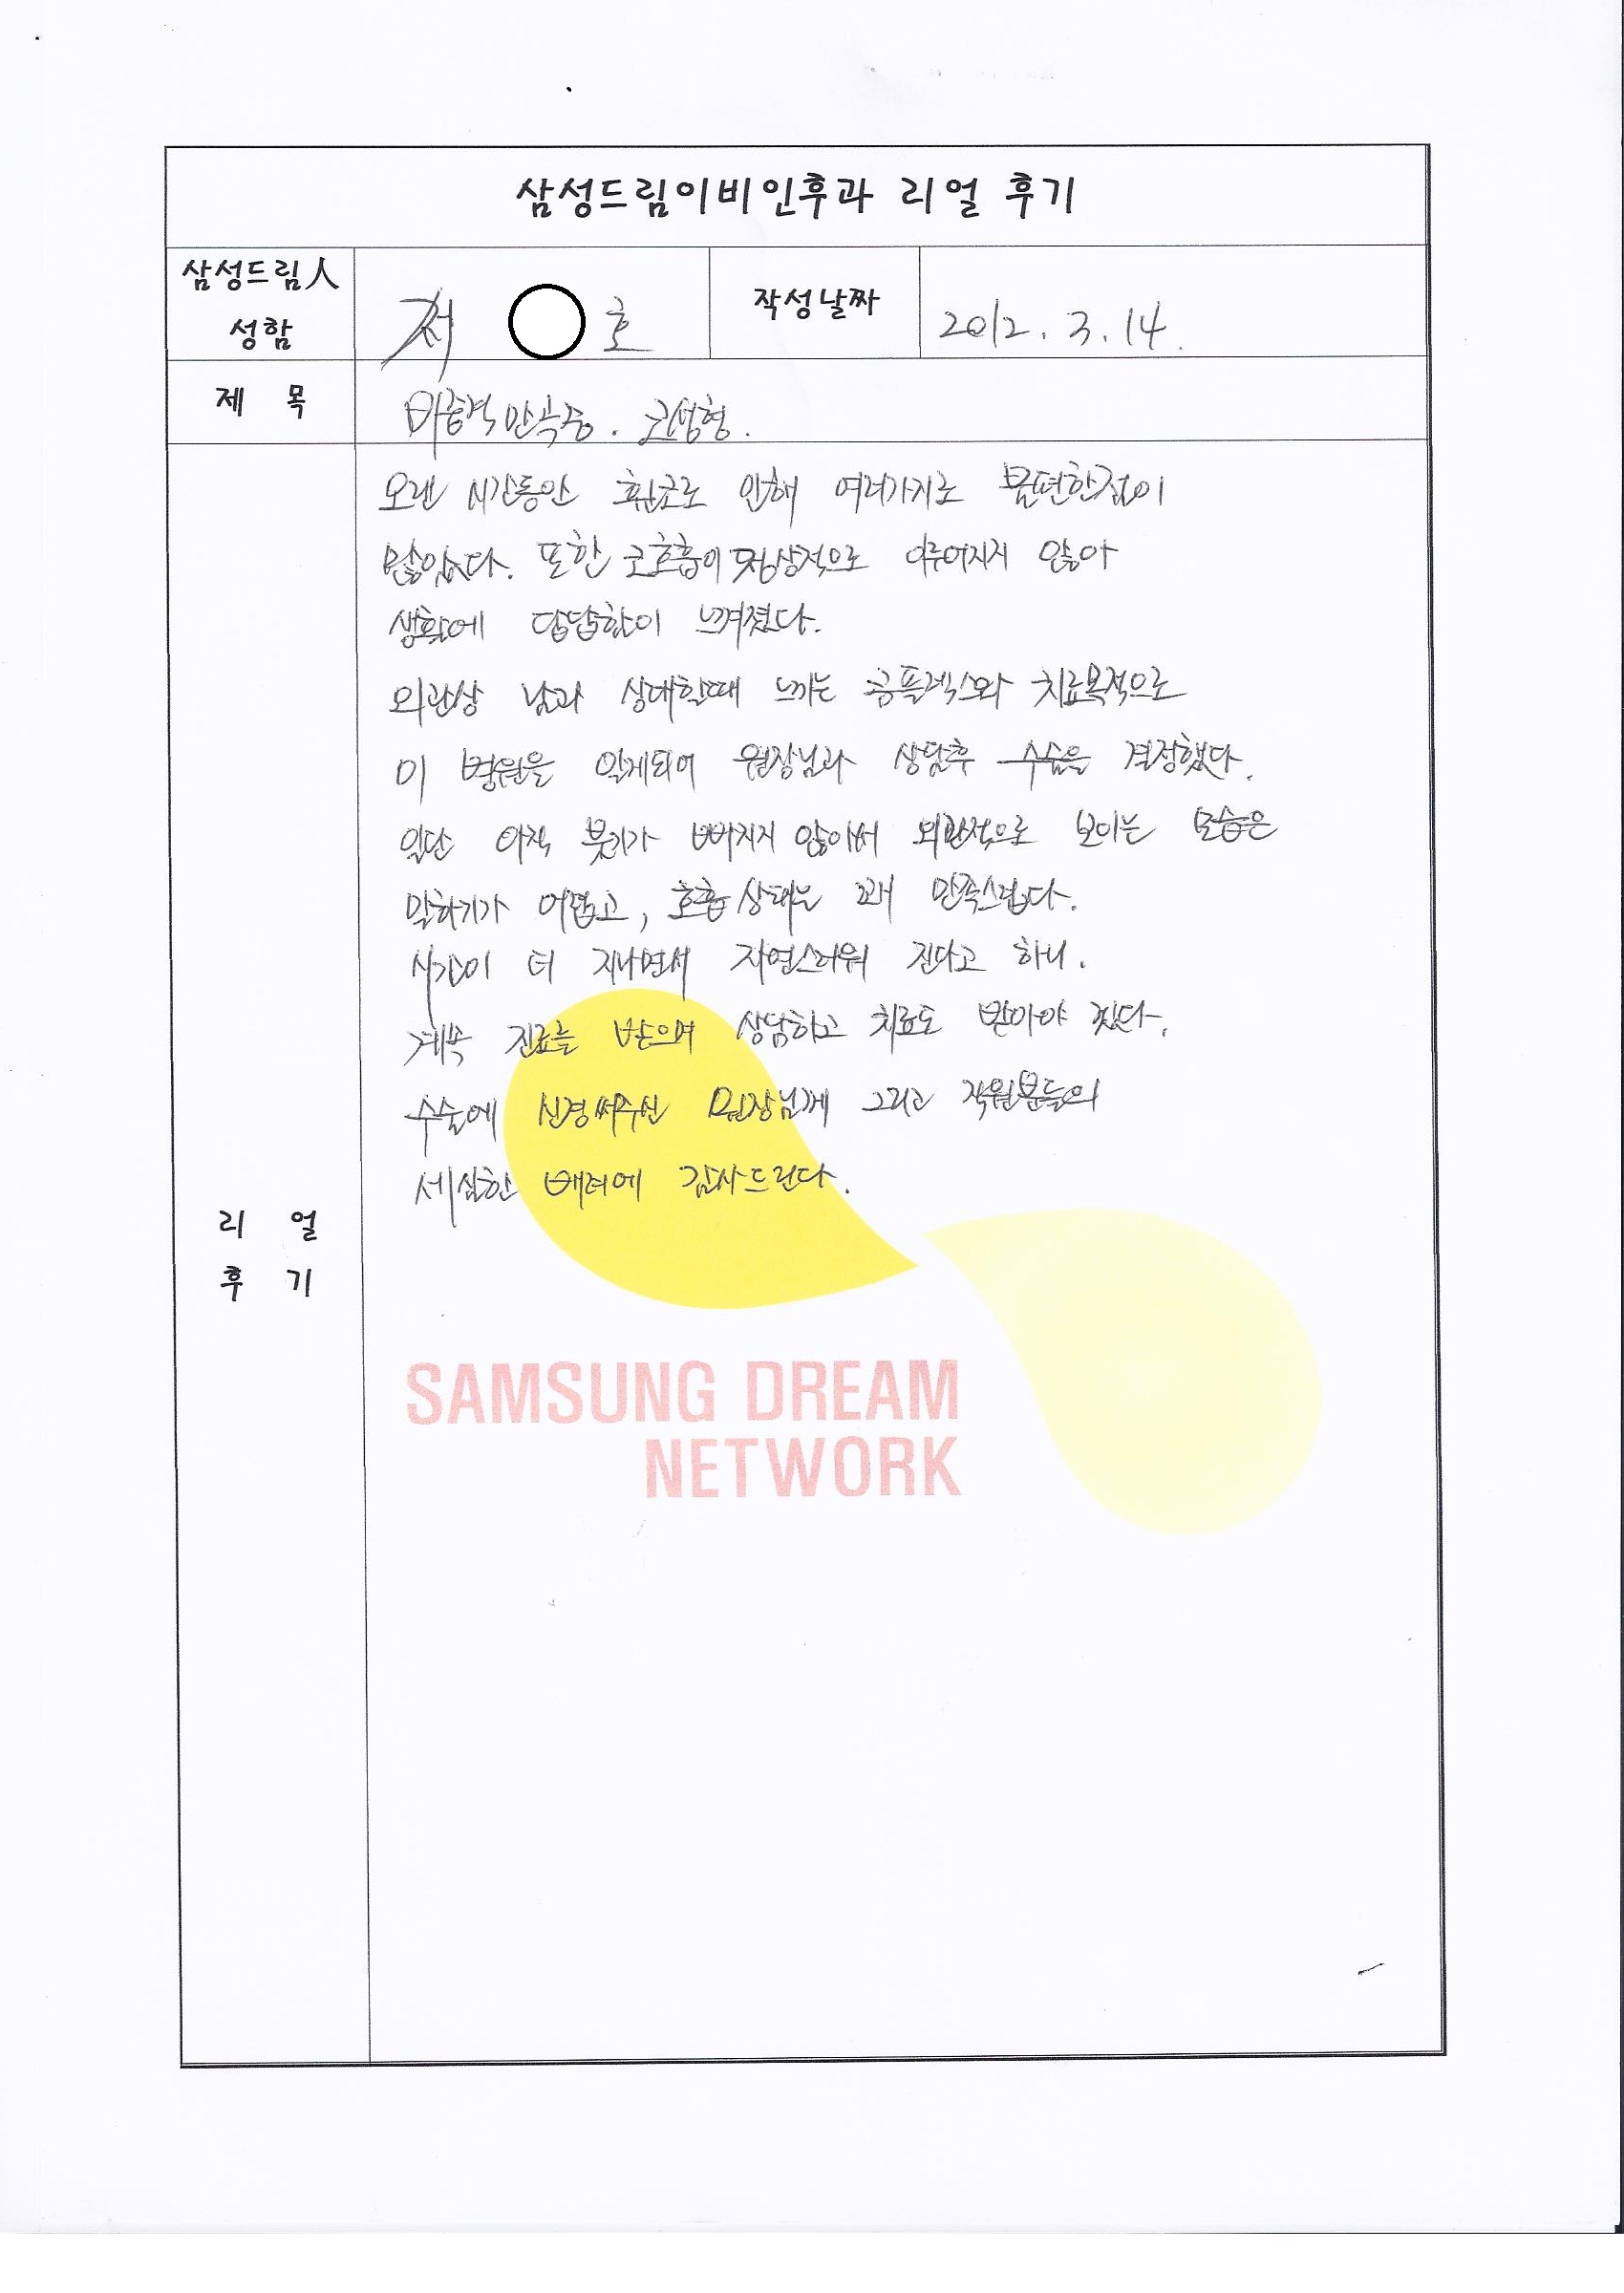 삼성드림이비인후과 리얼 후기
삼성드림人
성함
호
작성날짜
2012. 3. 14.
제 목
비중격만곡증. 코성형.
오랜 시간동안 휜코로 인해 여러가지로 불편한점이
많았다. 또한 코호흡이 정상적으로 이루어지지 않아
생활에 답답함이 느껴졌다.
외관상 남과 상대할때 느끼는 콤플렉스와 치료목적으로
이 병원을 알게되어 원장님과 상담후 수술을 결정했다.
일단 아직 붓기가 빠지지 않아서 외관적으로 보이는 모습은
말하기가 어렵고, 호흡상태는 꽤 만족스럽다.
시간이 더 지나면서 자연스러워 진다고 하니.
계속 진료를 받으며 상담하고 치료도 받아야 겠다.
수술에 신경써주신 원장님께 그리고 직원분들의
세심한 배려에 감사드린다.
리 얼
후 기
SAMSUNG DREAM
NETWORK